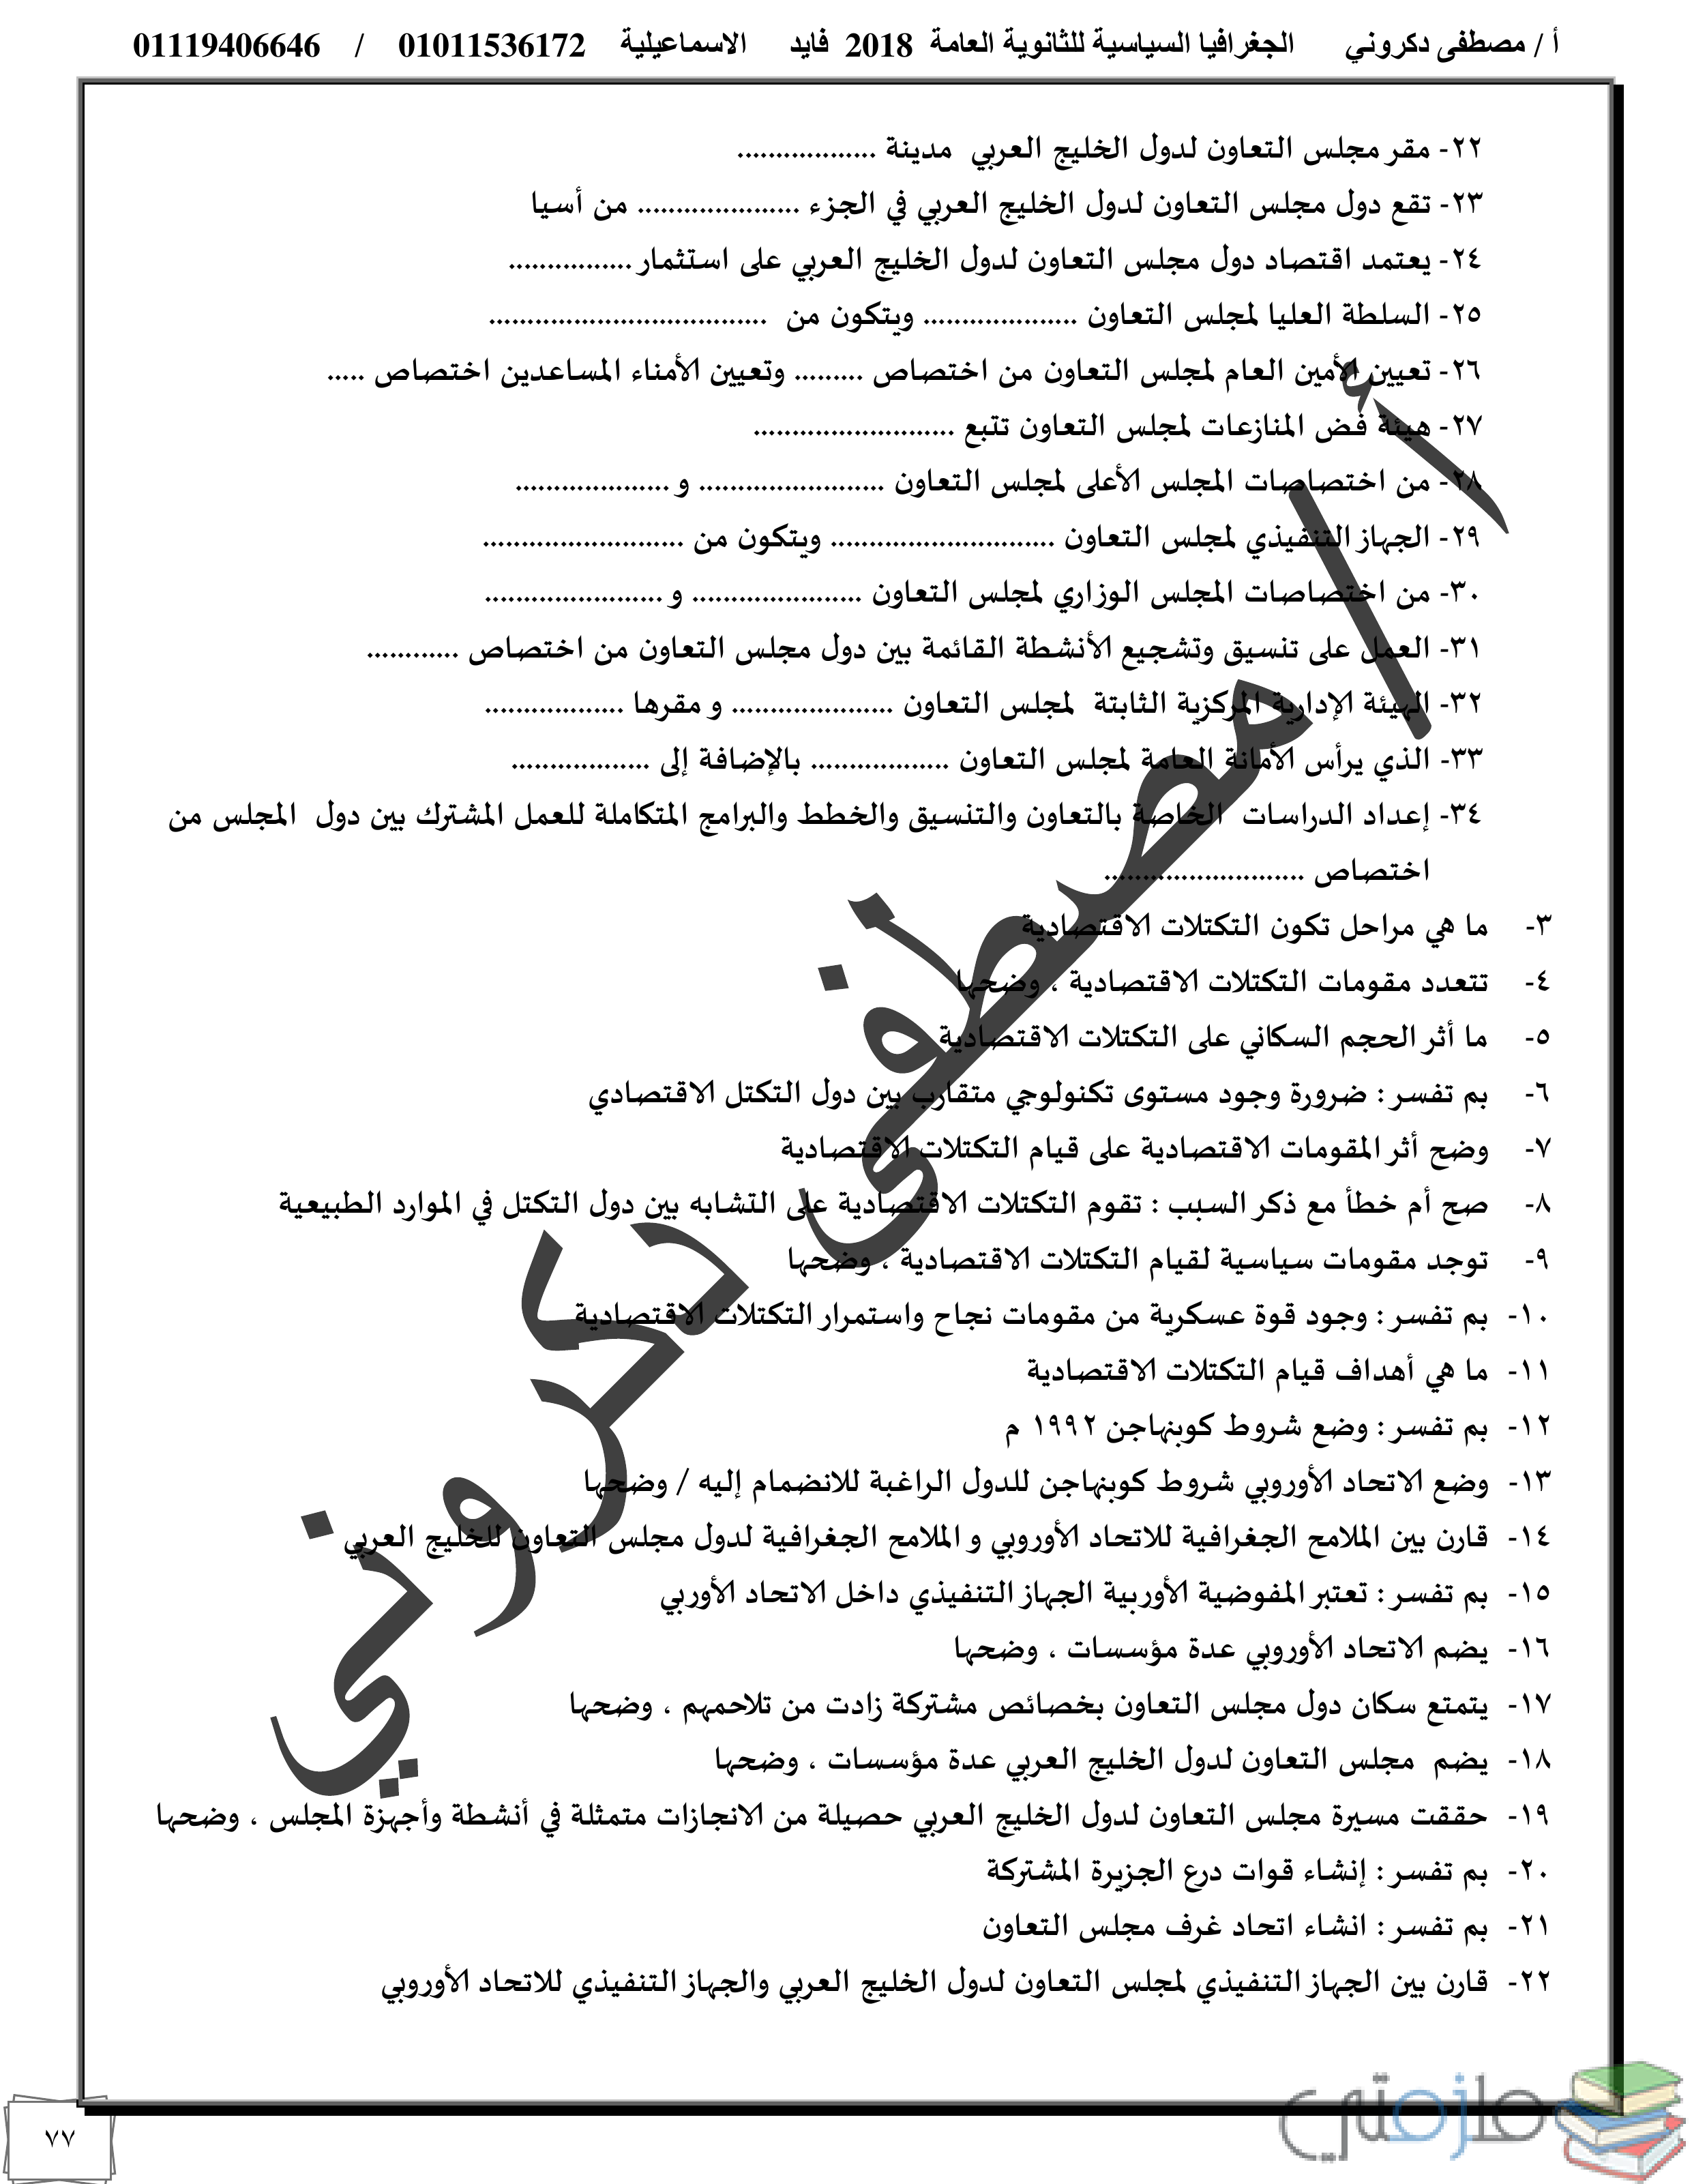 أ / مصطفى دكروني الجغرافيا السياسية للثانوية العامة 2018 فايد الاسماعيلية 01011536172 / 01119406646
٢٢- مقر مجلس التعاون لدول الخليج العربي مدينة ..................
٢٣- تقع دول مجلس التعاون لدول الخليج العربي في الجزء ..................... من أسيا
٢٤- يعتمد اقتصاد دول مجلس التعاون لدول الخليج العربي على استثمار ................
٢٥- السلطة العليا لمجلس التعاون .................... ويتكون من ....................................
٢٦- تعيين الأمين العام لمجلس التعاون من اختصاص ......... وتعيين الأمناء المساعدين اختصاص .....
٢٧- هيئة فض المنازعات لمجلس التعاون تتبع ..........................
٢٨- من اختصاصات المجلس الأعلى لمجلس التعاون ........................ و ....................
٢٩- الجهاز التنفيذي لمجلس التعاون ............................. ويتكون من ..........................
٣٠- من اختصاصات المجلس الوزاري لمجلس التعاون ...................... و .......................
٣١- العمل على تنسيق وتشجيع الأنشطة القائمة بين دول مجلس التعاون من اختصاص ............
٣٢- الهيئة الإدارية المركزية الثابتة لمجلس التعاون ..................... و مقرها ..................
٣٣- الذي يرأس الأمانة العامة لمجلس التعاون .................. بالإضافة إلى ..................
٣٤- إعداد الدراسات الخاصة بالتعاون والتنسيق والخطط والبرامج المتكاملة للعمل المشترك بين دول المجلس من
اختصاص ..........................
٣- ما هي مراحل تكون التكتلات الاقتصادية
٤- تتعدد مقومات التكتلات الاقتصادية ، وضحها
٥- ما أثر الحجم السكاني على التكتلات الاقتصادية
٦- بم تفسر : ضرورة وجود مستوى تكنولوجي متقارب بين دول التكتل الاقتصادي
٧- وضح أثر المقومات الاقتصادية على قيام التكتلات الاقتصادية
٨- صح أم خطأ مع ذكر السبب : تقوم التكتلات الاقتصادية على التشابه بين دول التكتل في الموارد الطبيعية
٩- توجد مقومات سياسية لقيام التكتلات الاقتصادية ، وضحها
١٠- بم تفسر : وجود قوة عسكرية من مقومات نجاح واستمرار التكتلات الاقتصادية
١١- ما هي أهداف قيام التكتلات الاقتصادية
١٢- بم تفسر : وضع شروط كوبنهاجن ١٩٩٢ م
١٣- وضع الاتحاد الأوروبي شروط كوبنهاجن للدول الراغبة للانضمام إليه / وضحها
١٤- قارن بين الملامح الجغرافية للاتحاد الأوروبي و الملامح الجغرافية لدول مجلس التعاون للخليج العربي
١٥- بم تفسر : تعتبر المفوضية الأوربية الجهاز التنفيذي داخل الاتحاد الأوربي
١٦- يضم الاتحاد الأوروبي عدة مؤسسات ، وضحها
١٧- يتمتع سكان دول مجلس التعاون بخصائص مشتركة زادت من تلاحمهم ، وضحها
١٨- يضم مجلس التعاون لدول الخليج العربي عدة مؤسسات ، وضحها
١٩- حققت مسيرة مجلس التعاون لدول الخليج العربي حصيلة من الانجازات متمثلة في أنشطة وأجهزة المجلس ، وضحها
٢٠- بم تفسر : إنشاء قوات درع الجزيرة المشتركة
٢١- بم تفسر : انشاء اتحاد غرف مجلس التعاون
٢٢- قارن بين الجهاز التنفيذي لمجلس التعاون لدول الخليج العربي والجهاز التنفيذي للاتحاد الأوروبي
أ / مصطفى دكروني
٧٧
ملزمتي